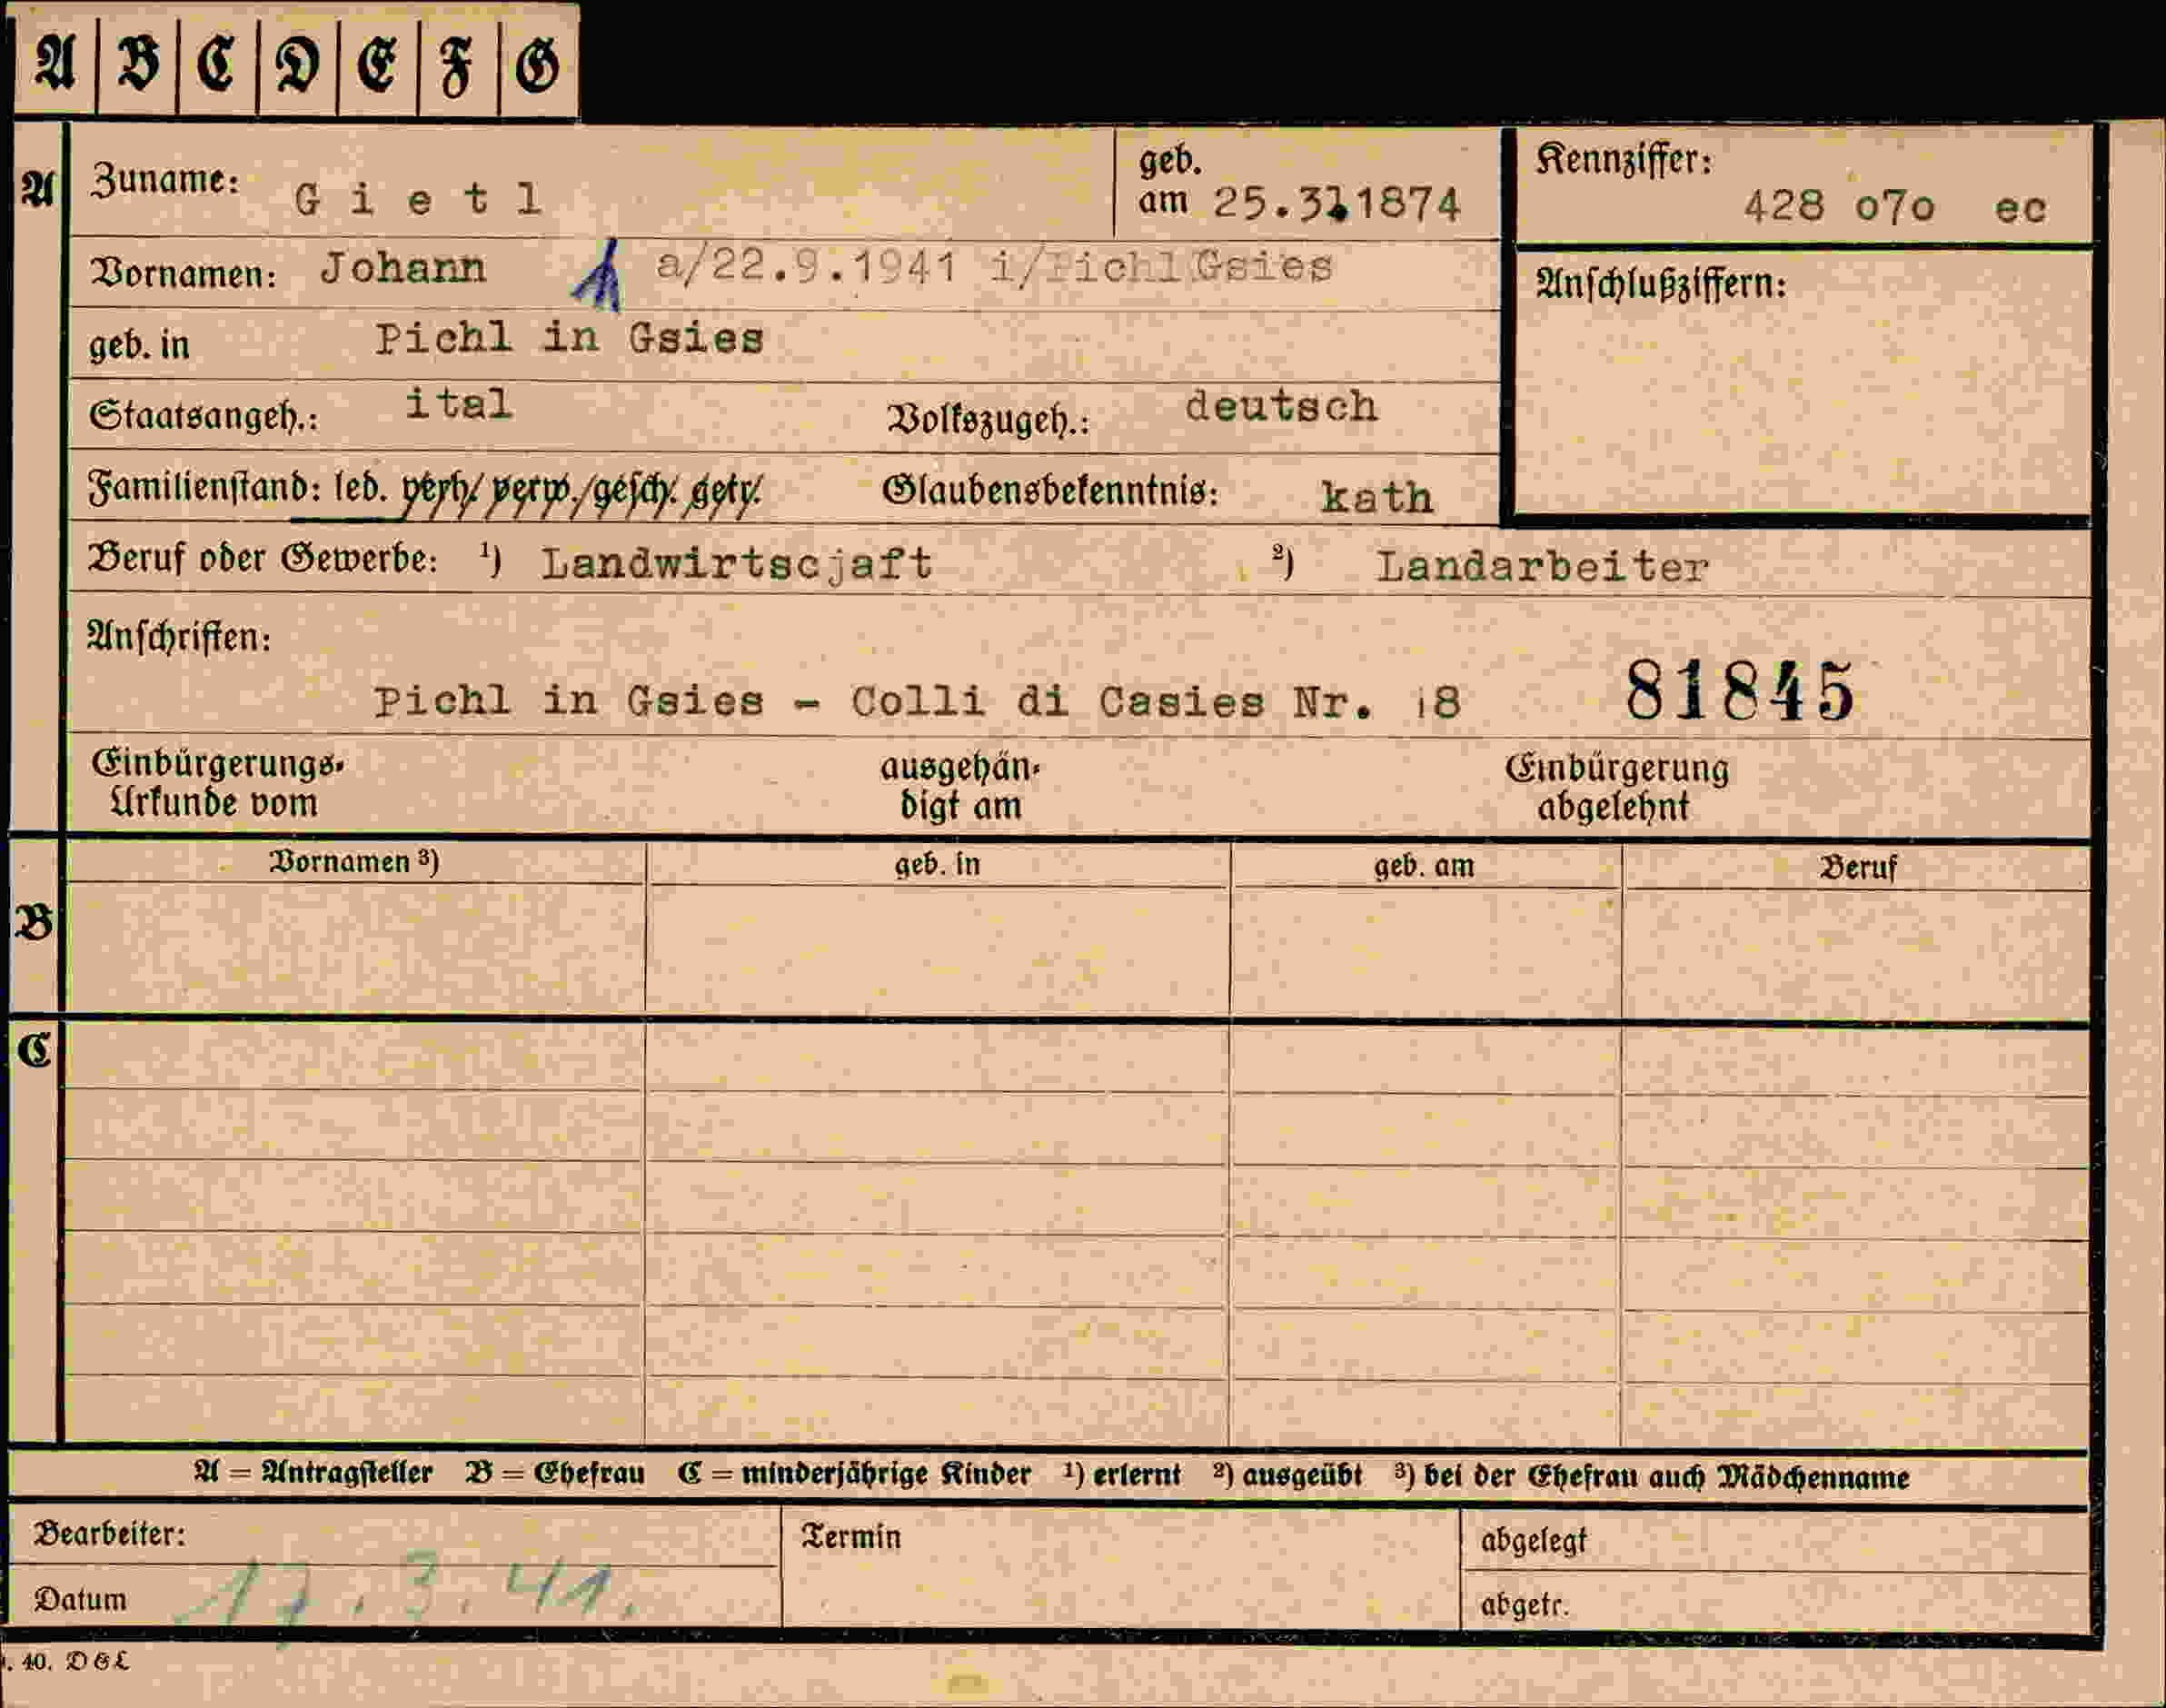 A B C D E F G
A Zuname: Gietl geb. am 25.3.1874 Kennziffer: 428 o7o ec
Vornamen: Johann a/22.9.1941 i/Pichl Gsies Anschlußziffern:
geb. in Pichl in Gsies
Staatsangeh.: ital Volkszugeh.: deutsch
Familienstand: led. verh. verw. gesch. getr. Glaubensbekenntnis: kath
Beruf oder Gewerbe: ¹) Landwirtscjaft ²) Landarbeiter
Anschriften:
Pichl in Gsies - Colli di Casies Nr. 18 81845
Einbürgerungs-Urkunde vom ausgehändigt am Einbürgerung abgelehnt
Vornamen ³) geb. in geb. am Beruf
B
C
A = Antragsteller B = Ehefrau C = minderjährige Kinder ¹) erlernt ²) ausgeübt ³) bei der Ehefrau auch Mädchenname
Bearbeiter: Termin abgelegt
Datum 17.3.41. abgetr.
. 40. D G L